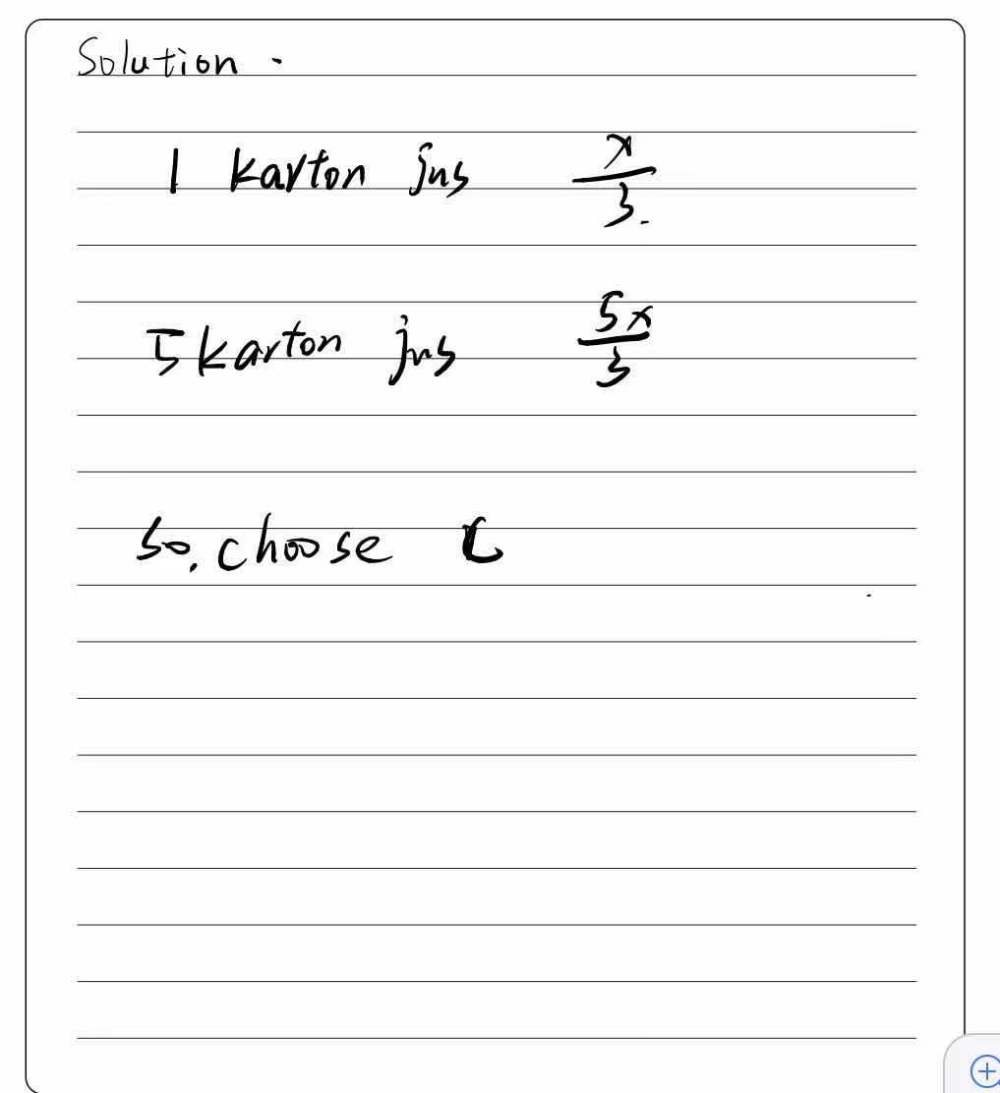 Solution.
1 karton jus x/3.
5 karton jus 5x/3
So, choose C